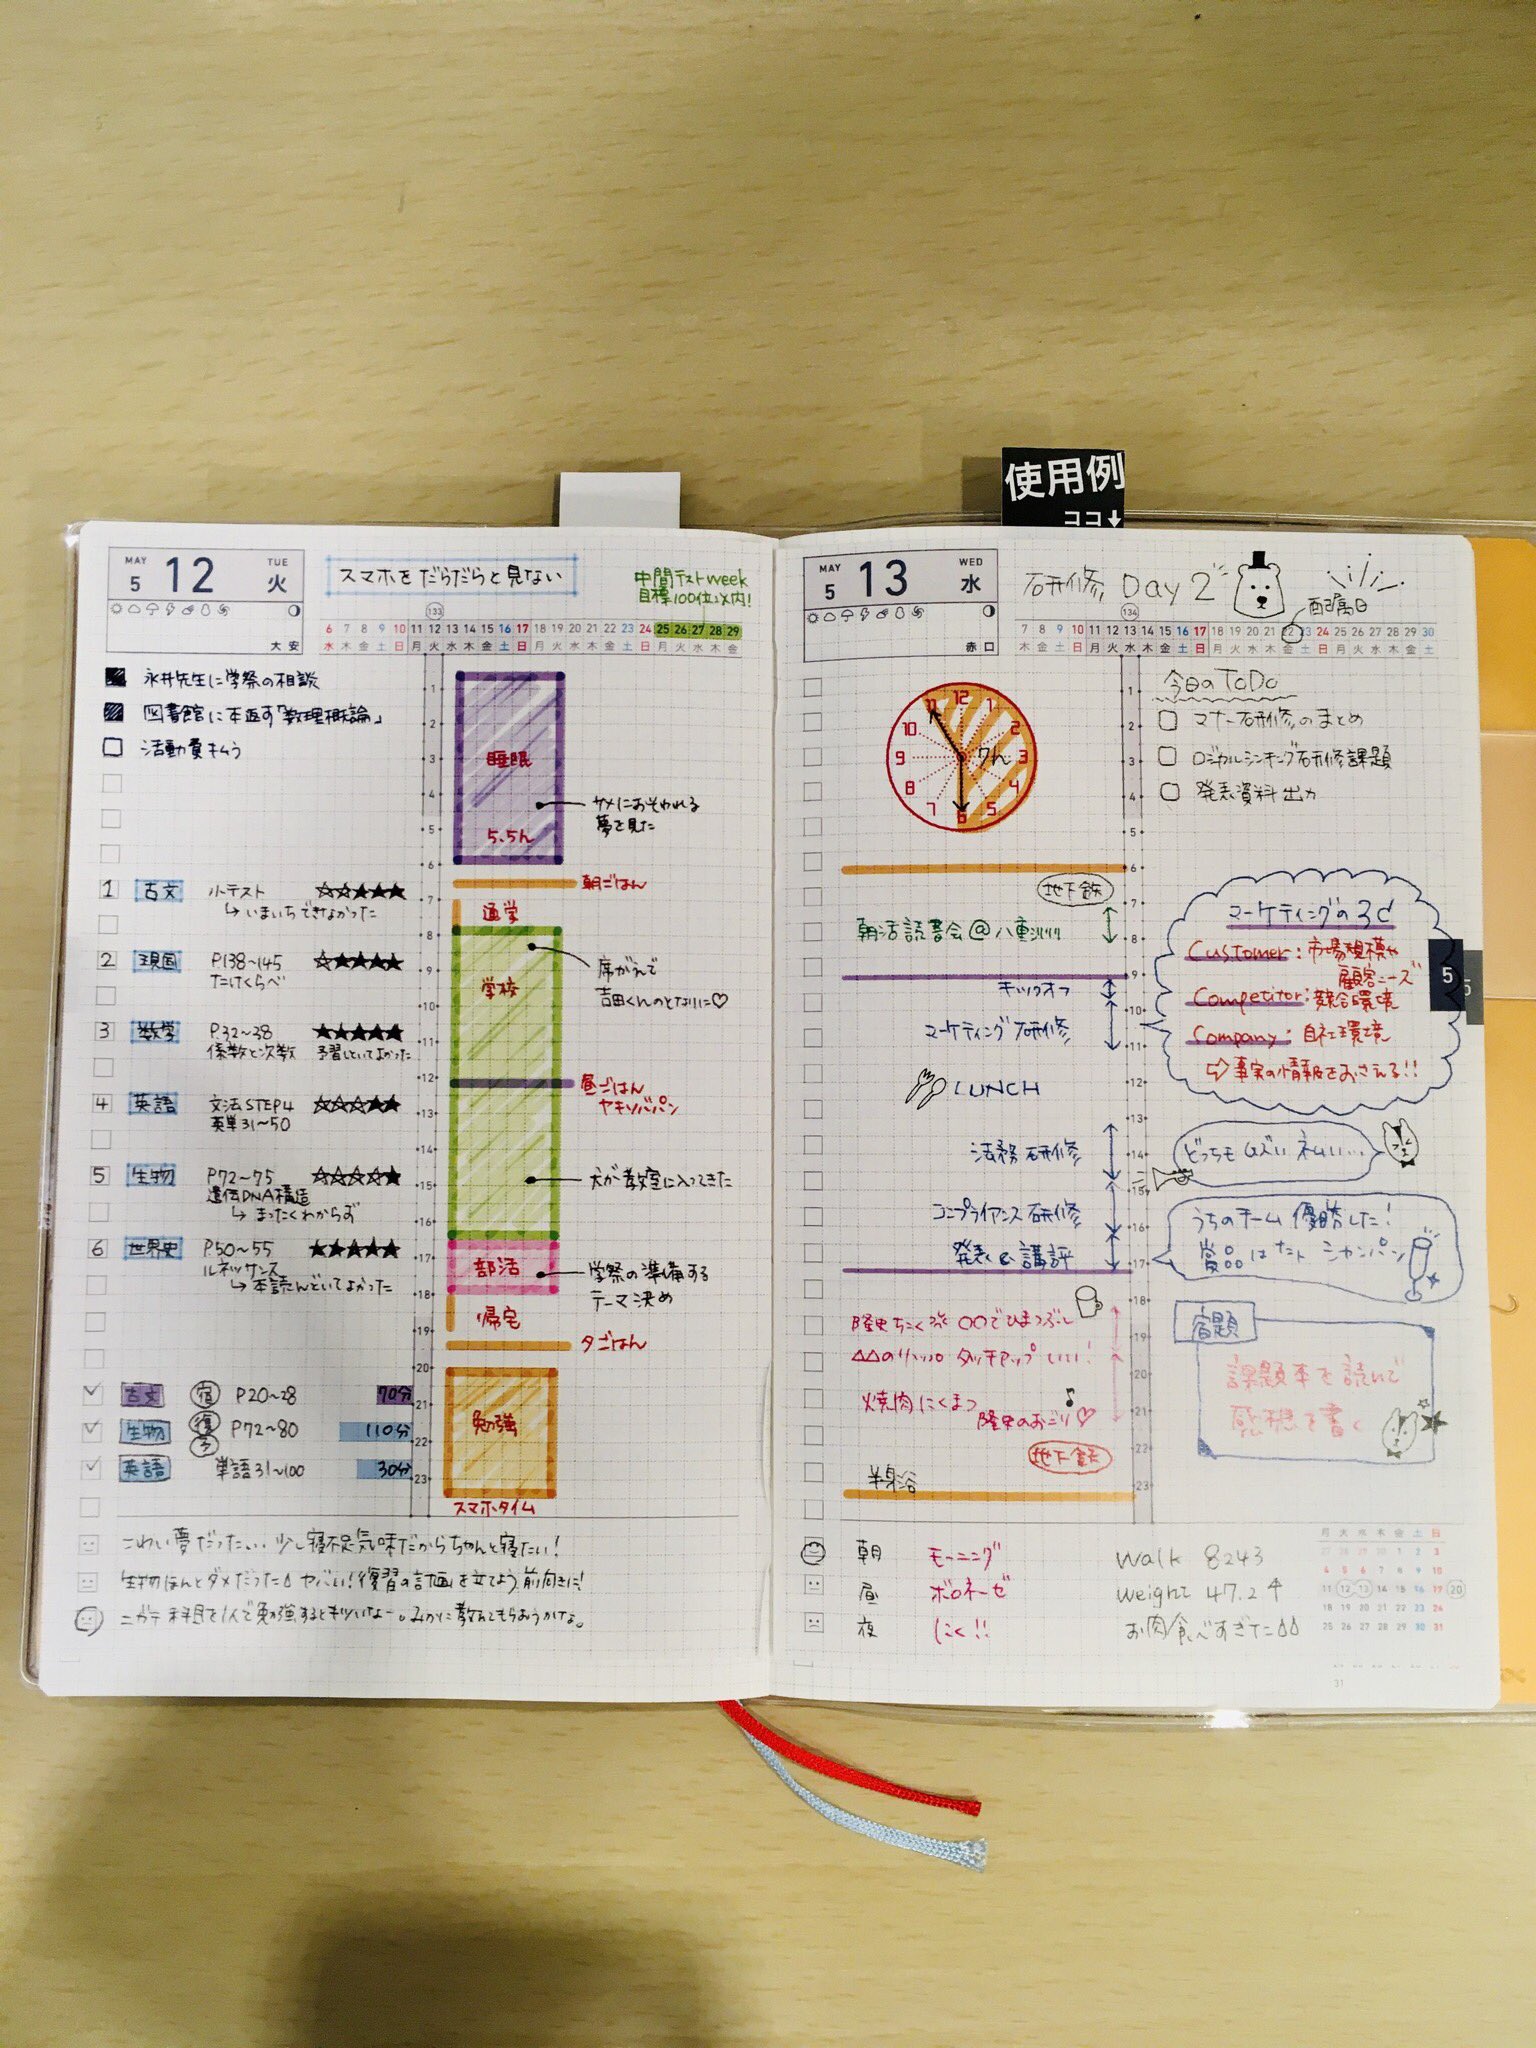 使用例
ココ↓
MAY
5
12
TUE
火
大安
スマホをだらだらと見ない
中間テストweek
目標100位以内!
133
6 7 8 9 10 11 12 13 14 15 16 17 18 19 20 21 22 23 24 25 26 27 28 29
水 木 金 土 日 月 火 水 木 金 土 日 月 火 水 木 金 土 日 月 火 水 木 金
永井先生に学祭の相談
図書館に本返す「数理概論」
活動費払う
1 古文 小テスト ☆☆★★★
↳いまいちできなかった
2 現国 P.138~145 ☆★★★★
たけくらべ
3 数学 P.32~38 ★★★★★
係数と次数 予習しといてよかった
4 英語 文法STEP4 ☆☆☆★★
英単31~50
5 生物 P.72~75 ☆☆☆☆★
遺伝DNA構造
↳まったくわからず
6 世界史 P.50~55 ★★★★★
ルネッサンス
↳本読んどいてよかった
古文 宿 P20~28 70分
生物 復 予 P72~80 110分
英語 単語31~100 30分
1
2
3
4
5
6
7
8
9
10
11
12
13
14
15
16
17
18
19
20
21
22
23
睡眠
5.5h
サメにおそわれる
夢を見た
朝ごはん
通学
学校
席がえで
吉田くんのとなりに♡
昼ごはん
ヤキソバパン
犬が教室に入ってきた
部活
学祭の準備する
テーマ決め
帰宅
夕ごはん
勉強
スマホタイム
こわい夢だった... 少し寝不足気味だからちゃんと寝たい!
生物ほんとダメだった ヤバい!復習の計画を立てよう前向きに!
ニガテ科目を1人で勉強するとキツいなー。みかに教えてもらおうかな。
MAY
5
13
WED
水
赤口
研修 Day 2
配属日
134
7 8 9 10 11 12 13 14 15 16 17 18 19 20 21 22 23 24 25 26 27 28 29 30
木 金 土 日 月 火 水 木 金 土 日 月 火 水 木 金 土 日 月 火 水 木 金 土
12
1
2
3
4
5
6
7
8
9
10
11
7h
今日のToDo
マナー研修のまとめ
ロジカルシンキング研修課題
発表資料出力
1
2
3
4
5
6
7
8
9
10
11
12
13
14
15
16
17
18
19
20
21
22
23
地下鉄
朝活読書会@八重洲
キックオフ
マーケティング研修
LUNCH
法務研修
コンプライアンス研修
発表&講評
マーケティングの3C
Customer:市場規模や
顧客ニーズ
Competitor:競合環境
Company:自社環境
⇨事実の情報をおさえる!!
5
5
どっちもムズい ネムい...
うちのチーム優勝した!
賞品はなんと シャンパン
宿題
課題本を読んで
感想を書く
隆史ちこく 〇〇でひまつぶし
△△のリップ タッチアップ いい!
焼肉にくまつ
隆史のおごり♡
地下鉄
半身浴
朝 モーニング
昼 ボロネーゼ
夜 にく!!
walk 8243
weight 47.2↑
お肉食べすぎた
月 火 水 木 金 土 日
27 28 29 30 1 2 3
4 5 6 7 8 9 10
11 12 13 14 15 16 17 20
18 19 20 21 22 23 24
25 26 27 28 29 30 31
31